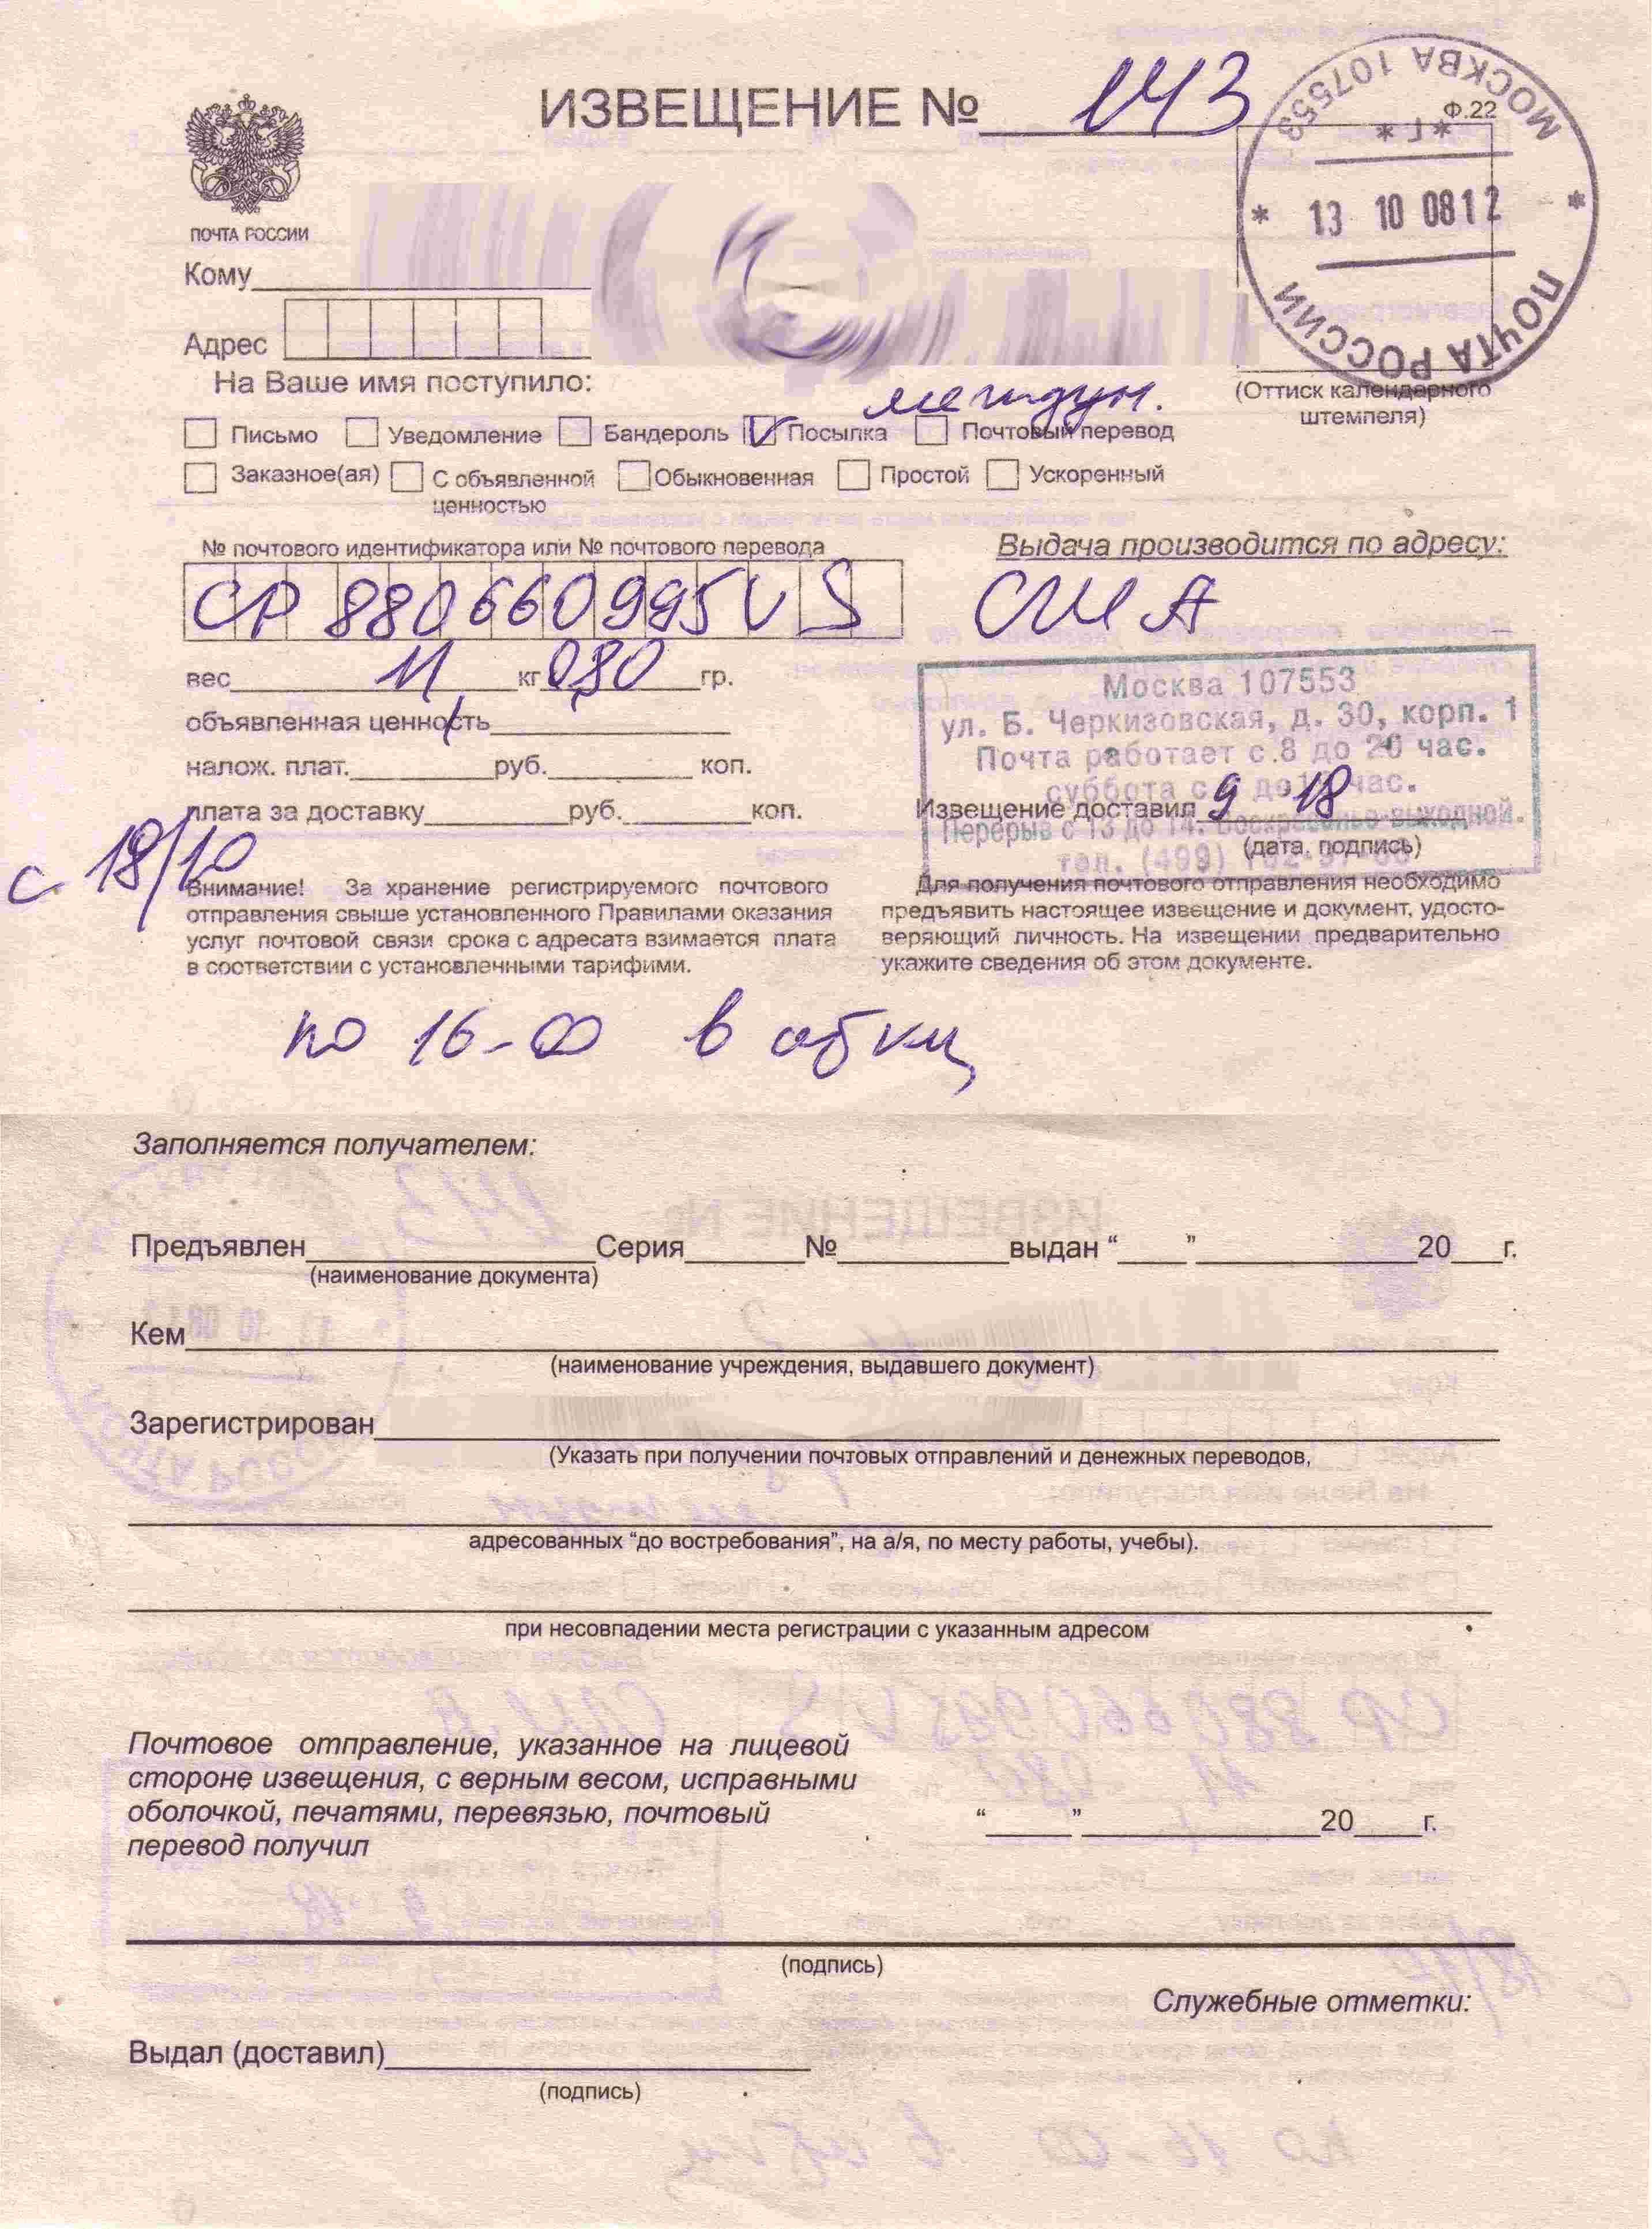 ИЗВЕЩЕНИЕ № 143
Ф.22
МОСКВА 107553
* Г *
* 13 10 08 12 *
ПОЧТА РОССИИ
ПОЧТА РОССИИ
Кому
Адрес
(Оттиск календарного
штемпеля)
На Ваше имя поступило:
междун.
Письмо Уведомление Бандероль Посылка Почтовый перевод
Заказное(ая) С объявленной ценностью Обыкновенная Простой Ускоренный
№ почтового идентификатора или № почтового перевода
CP 880660995US
Выдача производится по адресу:
США
вес 11 кг 080 гр.
объявленная ценность
налож. плат. руб. коп.
плата за доставку руб. коп.
Москва 107553
ул. Б. Черкизовская, д. 30, корп. 1
Почта работает с 8 до 20 час.
суббота с 9 до 18 час.
Извещение доставил
Перерыв с 13 до 14. Воскресенье-выходной.
(дата, подпись)
тел. (499)
с 18/10
Внимание! За хранение регистрируемого почтового
отправления свыше установленного Правилами оказания
услуг почтовой связи срока с адресата взимается плата
в соответствии с установленными тарифими.
Для получения почтового отправления необходимо
предъявить настоящее извещение и документ, удосто-
веряющий личность. На извещении предварительно
укажите сведения об этом документе.
по 16-00 в
Заполняется получателем:
Предъявлен Серия № выдан “ ” 20 г.
(наименование документа)
Кем
(наименование учреждения, выдавшего документ)
Зарегистрирован
(Указать при получении почтовых отправлений и денежных переводов,
адресованных “до востребования”, на а/я, по месту работы, учебы).
при несовпадении места регистрации с указанным адресом
Почтовое отправление, указанное на лицевой
стороне извещения, с верным весом, исправными
оболочкой, печатями, перевязью, почтовый
перевод получил
“ ” 20 г.
(подпись)
Служебные отметки:
Выдал (доставил)
(подпись)